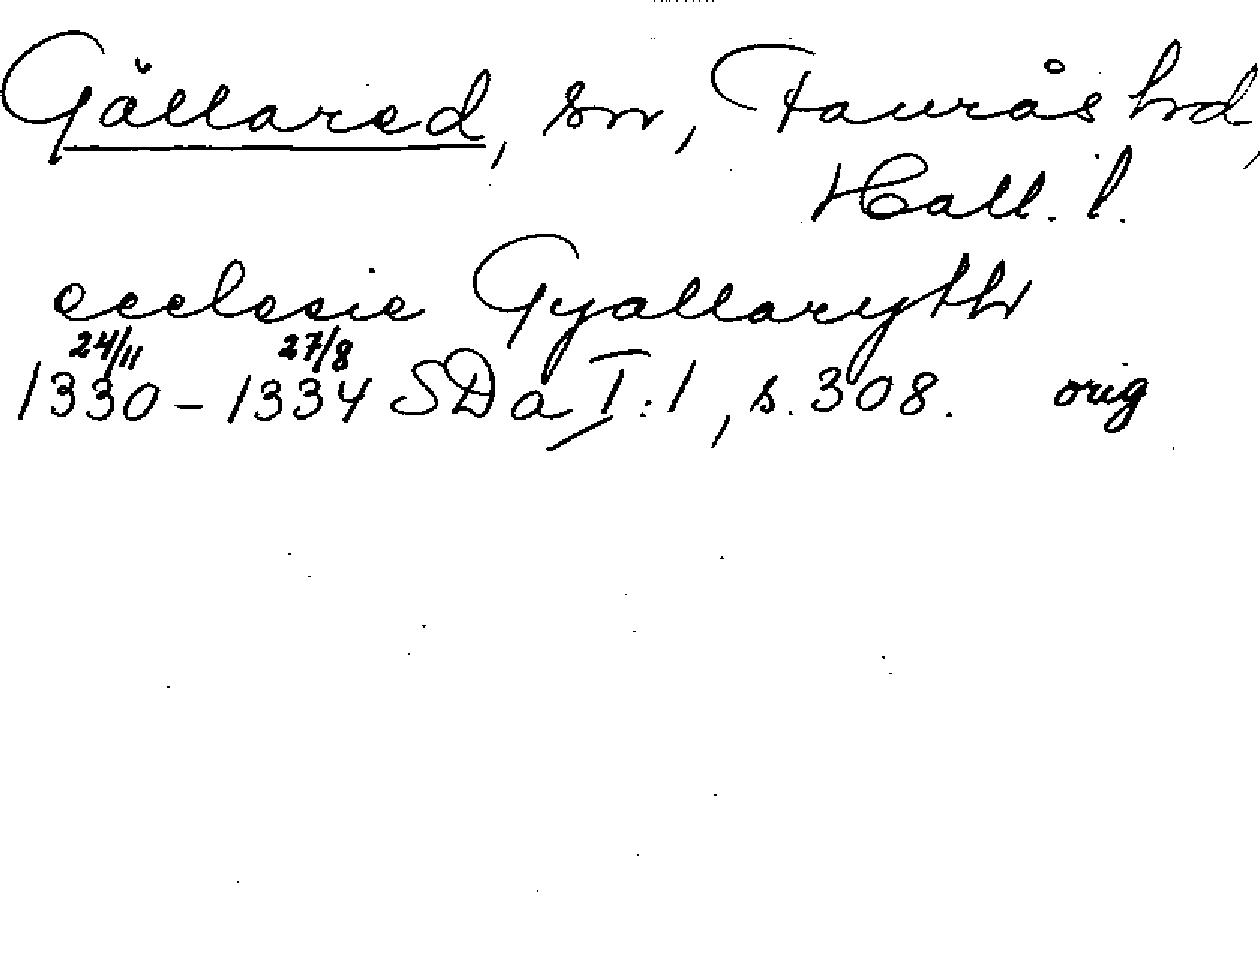 Gällared, sn, Faurås hd,
Hall. l.
ecclesie Gyallaryth
24/11 27/8
1330 - 1334 SDa I:1, s. 308. orig